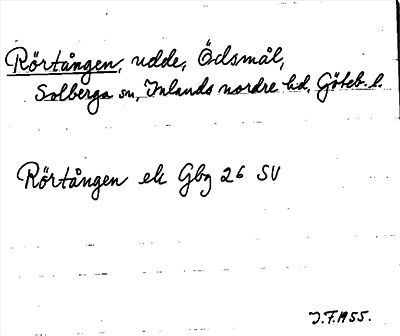 Rörtången, udde, Ödsmål,
Solberga sn, Inlands nordre hd, Göteb. l.
Rörtången ek Gbg 26 SV
J.F. 1955.